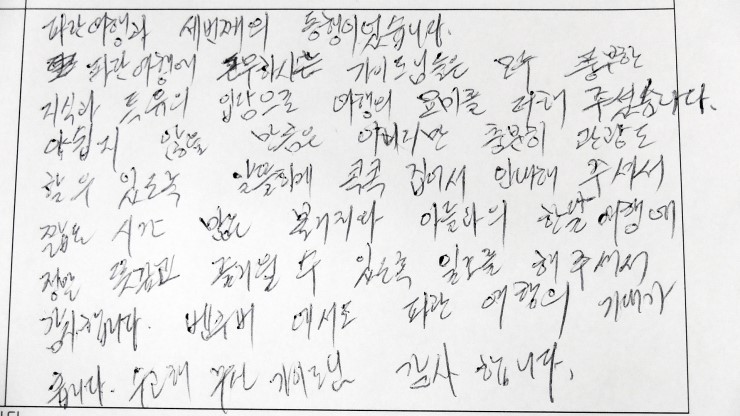 파란여행과 세번째의 동행이었습니다.
파란여행에 근무하시는 가이드님들은 모두 충분한
지식과 특유의 입담으로 여행의 묘미를 더해 주셨습니다.
아쉽지 않을 만큼은 아니지만 충분히 관광도
할 수 있도록 알뜰하게 콕콕 집어서 안내해 주셔서
짧은 시간 많은 볼거리와 아들과의 한달 여행에
정말 뜻깊고 즐거울 수 있도록 일조를 해 주셔서
감사합니다. 벤쿠버 에서도 파란 여행의 기대가
됩니다. 수고해 주신 가이드님 감사 합니다.